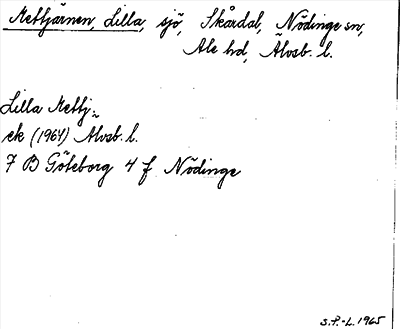 Mettjärnen, Lilla, sjö, Skårdal, Nödinge sn,
Ale hd, Älvsb. l.
Lilla Mettj.
ek (1964) Älvsb. l.
7 B Göteborg 4 f Nödinge
S.F.-L. 1965